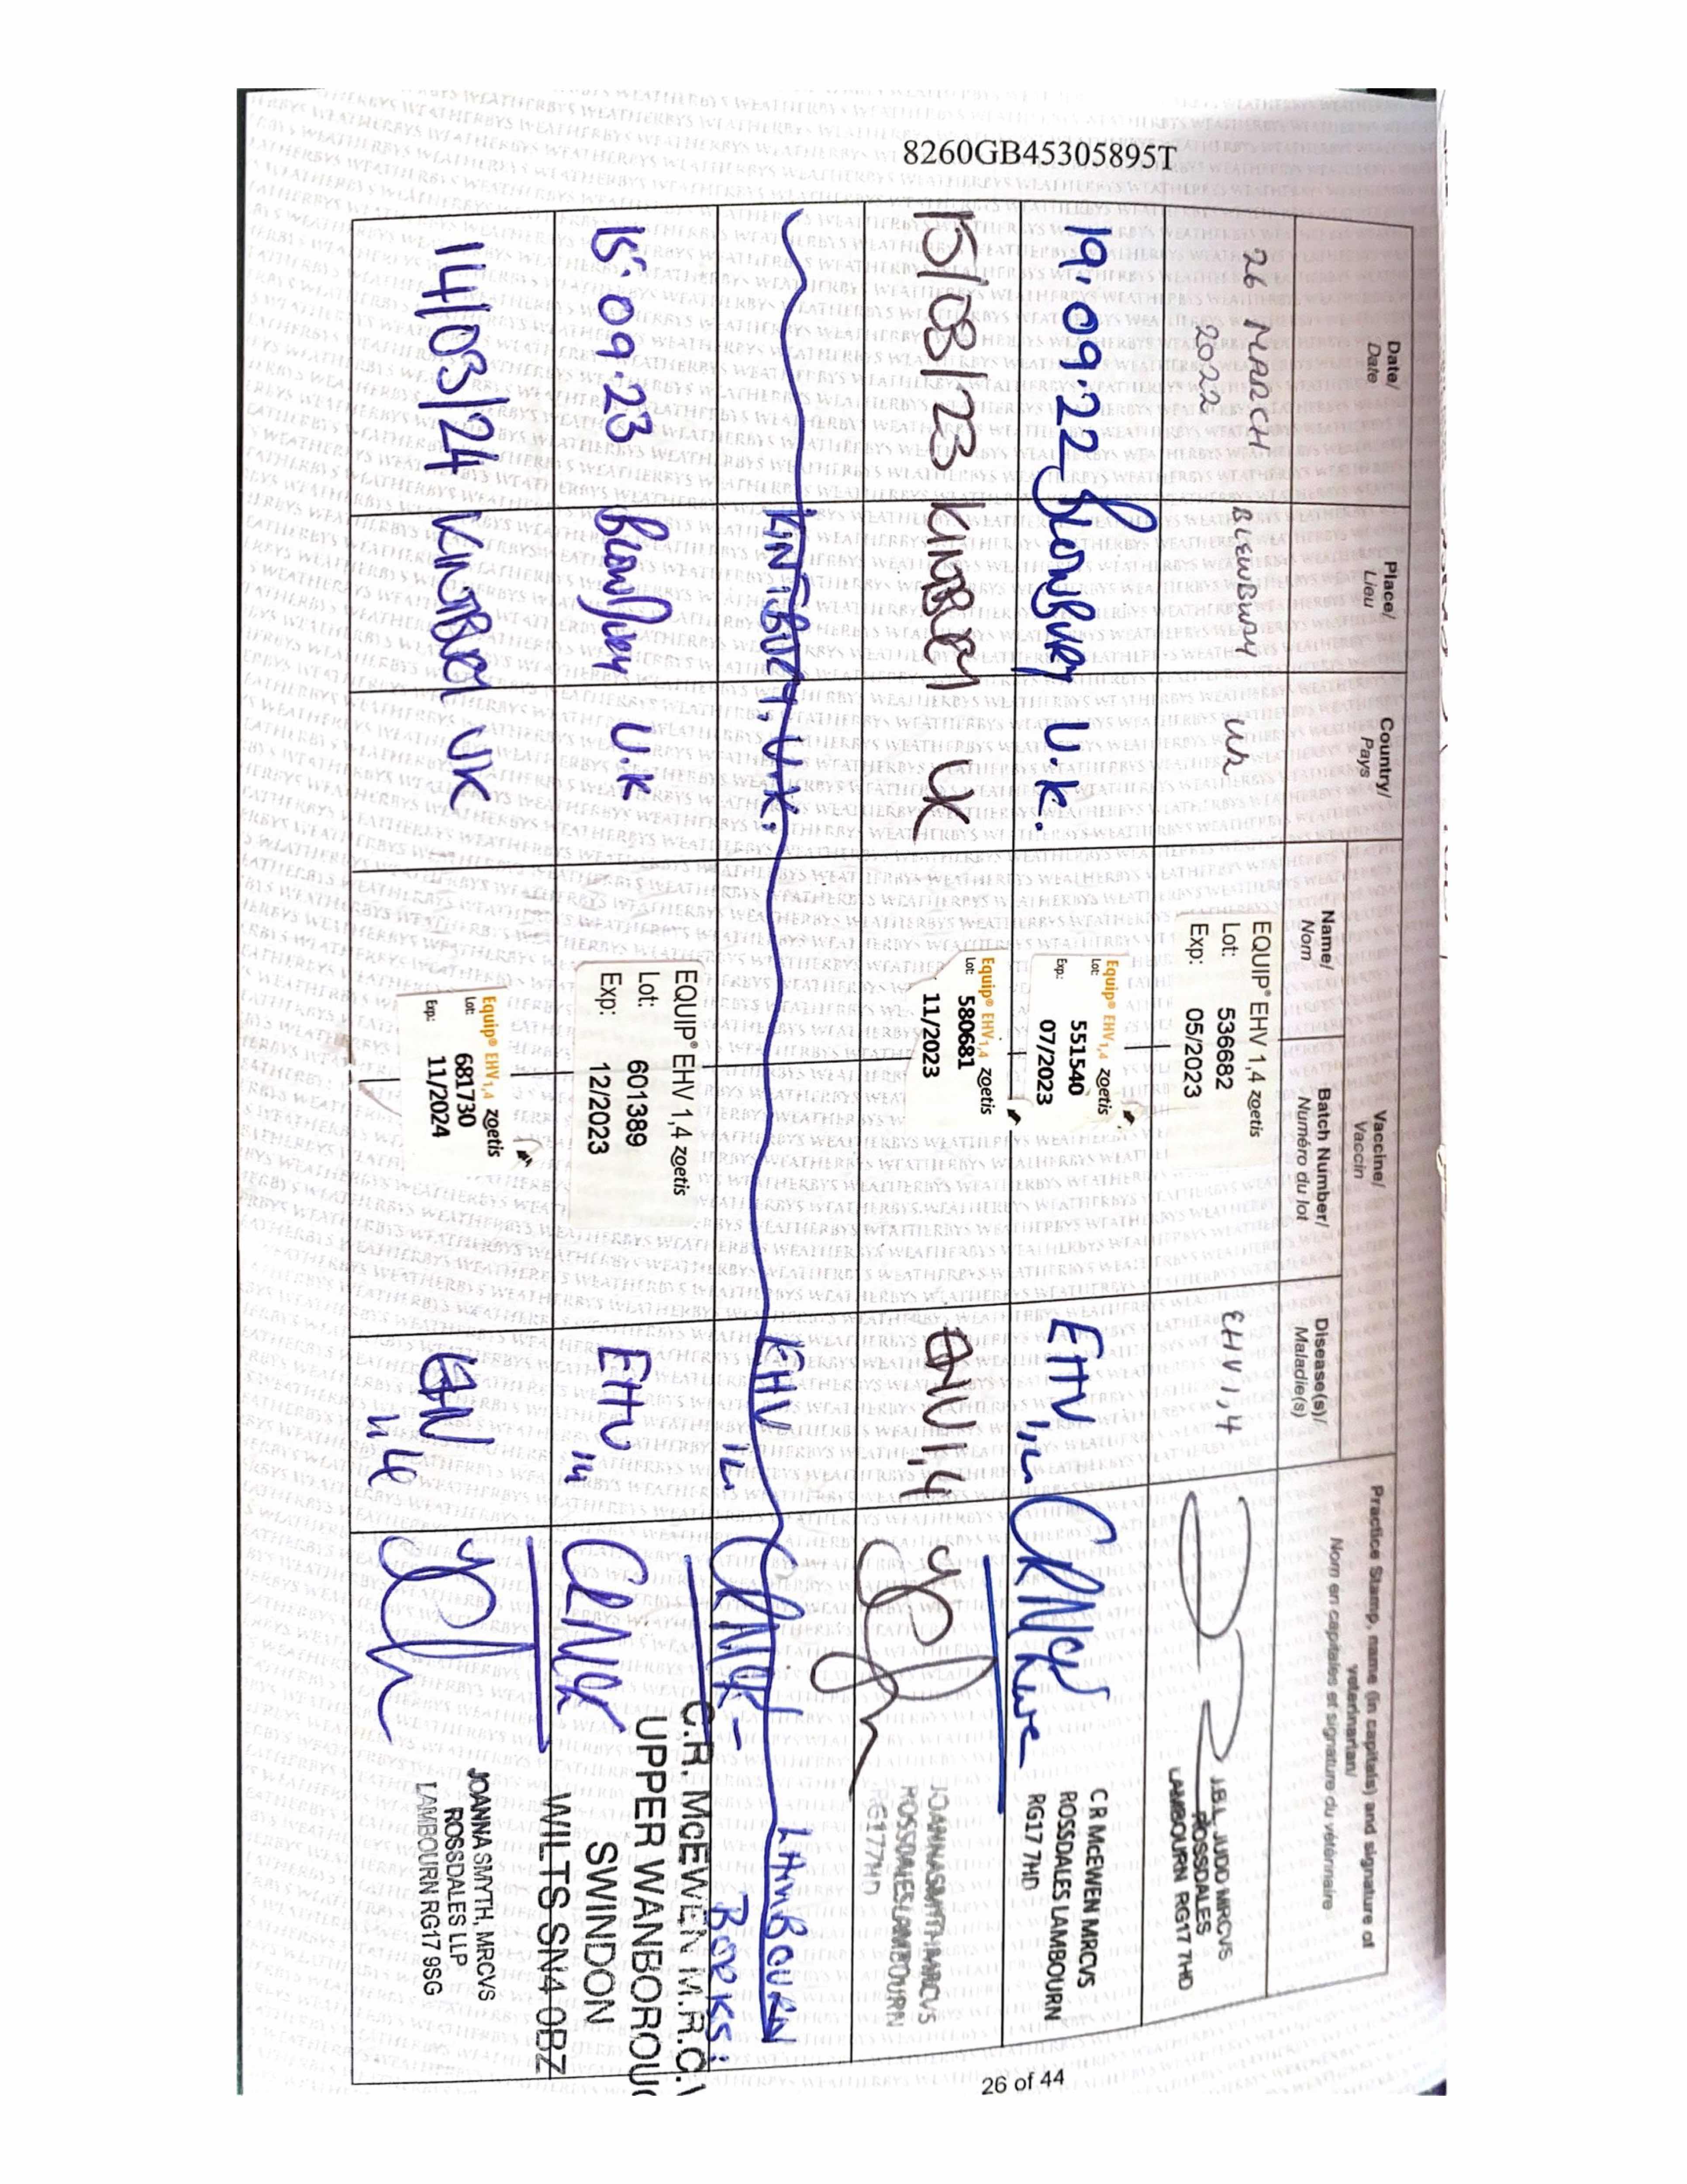 8260GB45305895T
Date/
Date
Place/
Lieu
Country/
Pays
Vaccine/
Vaccin
Name/
Nom
Batch Number/
Numéro du lot
Disease(s)/
Maladie(s)
Practice Stamp, name (in capitals) and signature of
veterinarian/
Nom en capitales et signature du vétérinaire
26 MARCH
2022
BLEWBURY
UK
EQUIP® EHV 1,4 zoetis
Lot: 536682
Exp: 05/2023
EHV 1,4
J.B.L. JUDD MRCVS
ROSSDALES
LAMBOURN RG17 7HD
19.09.22
Blewbury
U.K.
Equip® EHV1,4 zoetis
Lot: 551540
Exp: 07/2023
EHV 1,4
C R McEWEN MRCVS
ROSSDALES LAMBOURN
RG17 7HD
15/08/23
KINTBURY
UK
Equip® EHV1,4 zoetis
Lot: 580681
11/2023
EHV 1,4
JOANNA SMYTH MRCVS
ROSSDALES LAMBOURN
RG17 7HD
KINTBURY, U.K.
EHV
LAMBOURN
BERKS.
15.09.23
Blewbury
U.K
EQUIP® EHV 1,4 zoetis
Lot: 601389
Exp: 12/2023
EHV 1,4
C.R. McEWEN M.R.C.V
UPPER WANBOROUG
SWINDON
WILTS SN4 0BZ
14/03/24
KINTBURY
UK
Equip® EHV1,4 zoetis
Lot: 681730
Exp: 11/2024
EHV
1,4
JOANNA SMYTH, MRCVS
ROSSDALES LLP
LAMBOURN RG17 9SG
26 of 44